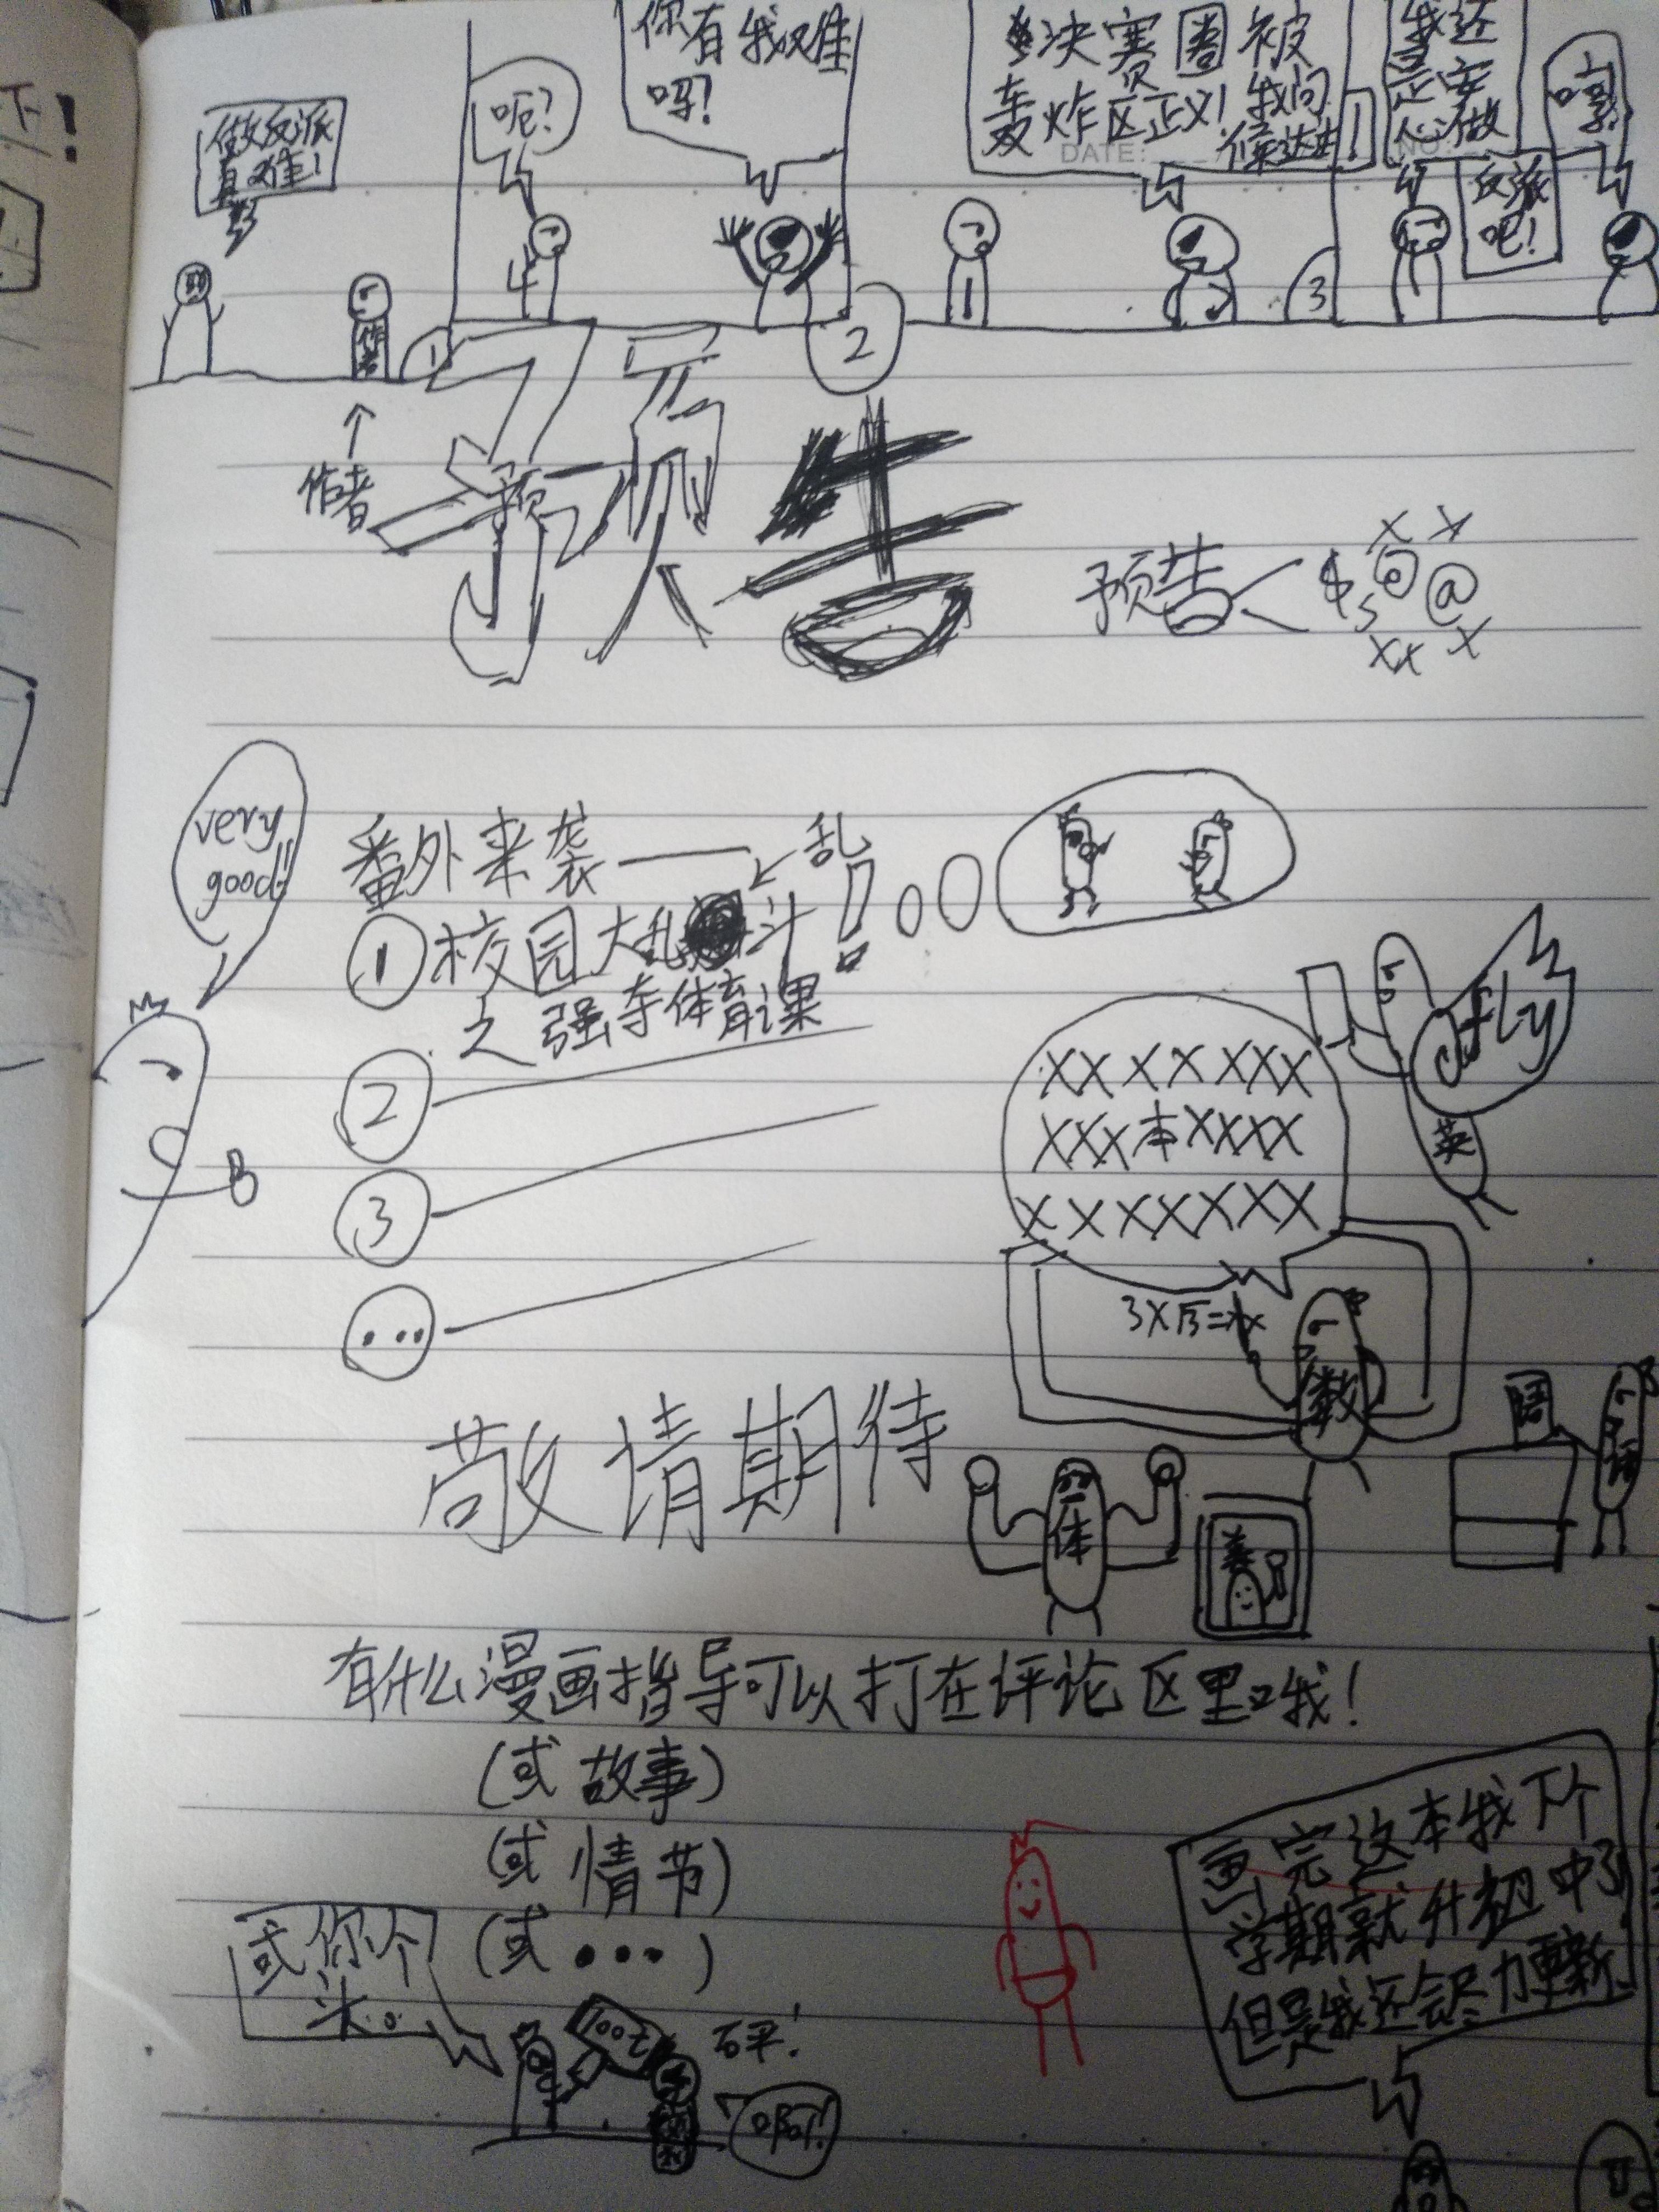 下!
做反派
真难!
呃?
你有我难
吗?
决赛圈被
轰炸区正义!我问
候达
我还
是安
心做
反派
吧!
哼
DATE:
NO:
1
2
3
作者
作者
预告
预告
$ @ @
very
good!!
番外来袭——
乱
①校园大乱斗!
之强夺体育课
②
③
...
fly
英
XXXXXXX
XXX本XXXX
XXXXXXX
数
语
体
美
敬请期待
有什么漫画指导可以打在评论区里哦!
(或故事)
(或情节)
(或...)
或你个
头。
100t
砰!
啊!
画完这本我下个
学期就升初中了
但是我还会尽力更新